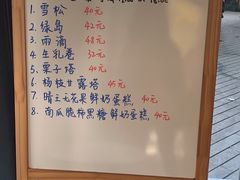 1. 雪松 40元
2. 绿岛 42元
3. 雨滴 48元
4. 生乳卷 32元
5. 栗子塔 40元
6. 杨枝甘露塔 45元
7. 晴王无花果鲜奶蛋糕 40元
8. 南瓜脆柿黑糖鲜奶蛋糕 40元